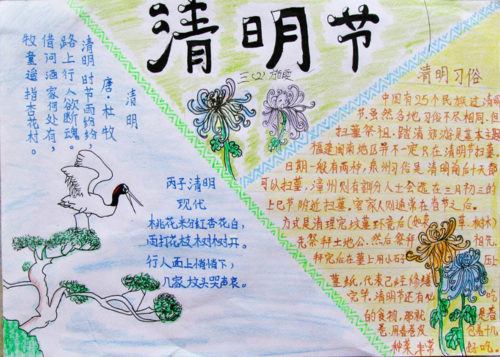 清明节
三（2）
清明
唐·杜牧
清明时节雨纷纷，
路上行人欲断魂。
借问酒家何处有，
牧童遥指杏花村。
丙子清明
现代
桃花米分红杏花白，
雨打花枝树树开。
行人面上悄悄下，
几家坟头哭声哀。
清明习俗
中国有25个民族过清明
节，虽然各地习俗不尽相同，但
扫墓祭祖、踏清郊游是基本主题
福建闽南地区并不一定只在清明节扫墓，
日期一般有两种，泉州习俗是清明前后十天都
可以扫墓，漳州则有部分人士会选在三月初三的
上巳节附近扫墓，客家人则通常在春节之后。
方式是清理完坟墓环境后
先祭拜土地公，然后祭拜
拜完后在墓上用小石
压上
墓纸，代表已经修缮
完毕。清明节还有
的食物，那就
是春
卷，用春卷皮
包着十几
种菜，
好吃。